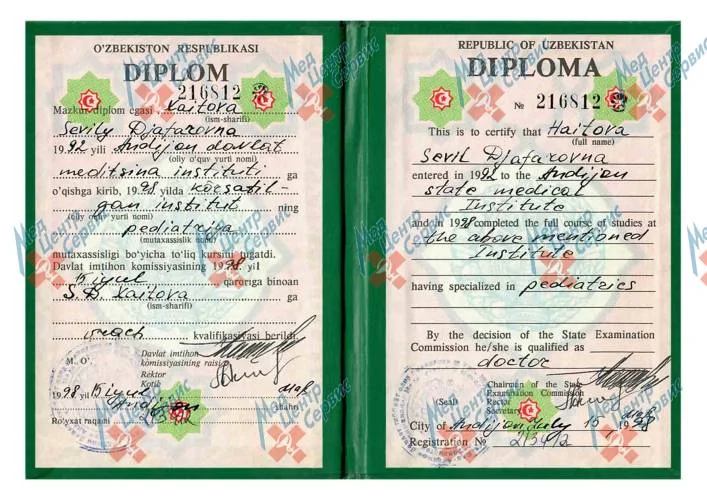 O'ZBEKISTON RESPUBLIKASI
DIPLOM
216812
Mazkur diplom egasi Xaitova
(ism-sharifi)
Sevily Djafarovna
1992 yili Andijon davlat
(oliy o'quv yurti nomi)
meditsina instituti ga
o'qishga kirib, 1998 yilda ko'rsatil-
gan institut ning
(oliy o'quv yurti nomi)
pediatriya
(mutaxassislik nomi)
mutaxassisligi bo'yicha to'liq kursini tugatdi.
Davlat imtihon komissiyasining 1998 yil
15 iyul qaroriga binoan
S.D. Xaitova ga
(ism-sharifi)
vrach kvalifikatsiyasi berildi.
M. O'.
Davlat imtihon
komissiyasining raisi
Rektor
Kotib
1998 yil 15 iyul
shahri
Ro'yxat raqami
REPUBLIC OF UZBEKISTAN
DIPLOMA
№ 216812
This is to certify that Haitova
(full name)
Sevil Djafarovna
entered in 1992 to the Andijan
state medical
Institute
and in 1998 completed the full course of studies at
the above mentioned
Institute
having specialized in pediatrics
By the decision of the State Examination
Commission he/she is qualified as
doctor
(Seal)
Chairman of the State
Examination Commission
Rector
Secretary
City of Andijan July 15, 1998
Registration №
Мед Центр Сервис